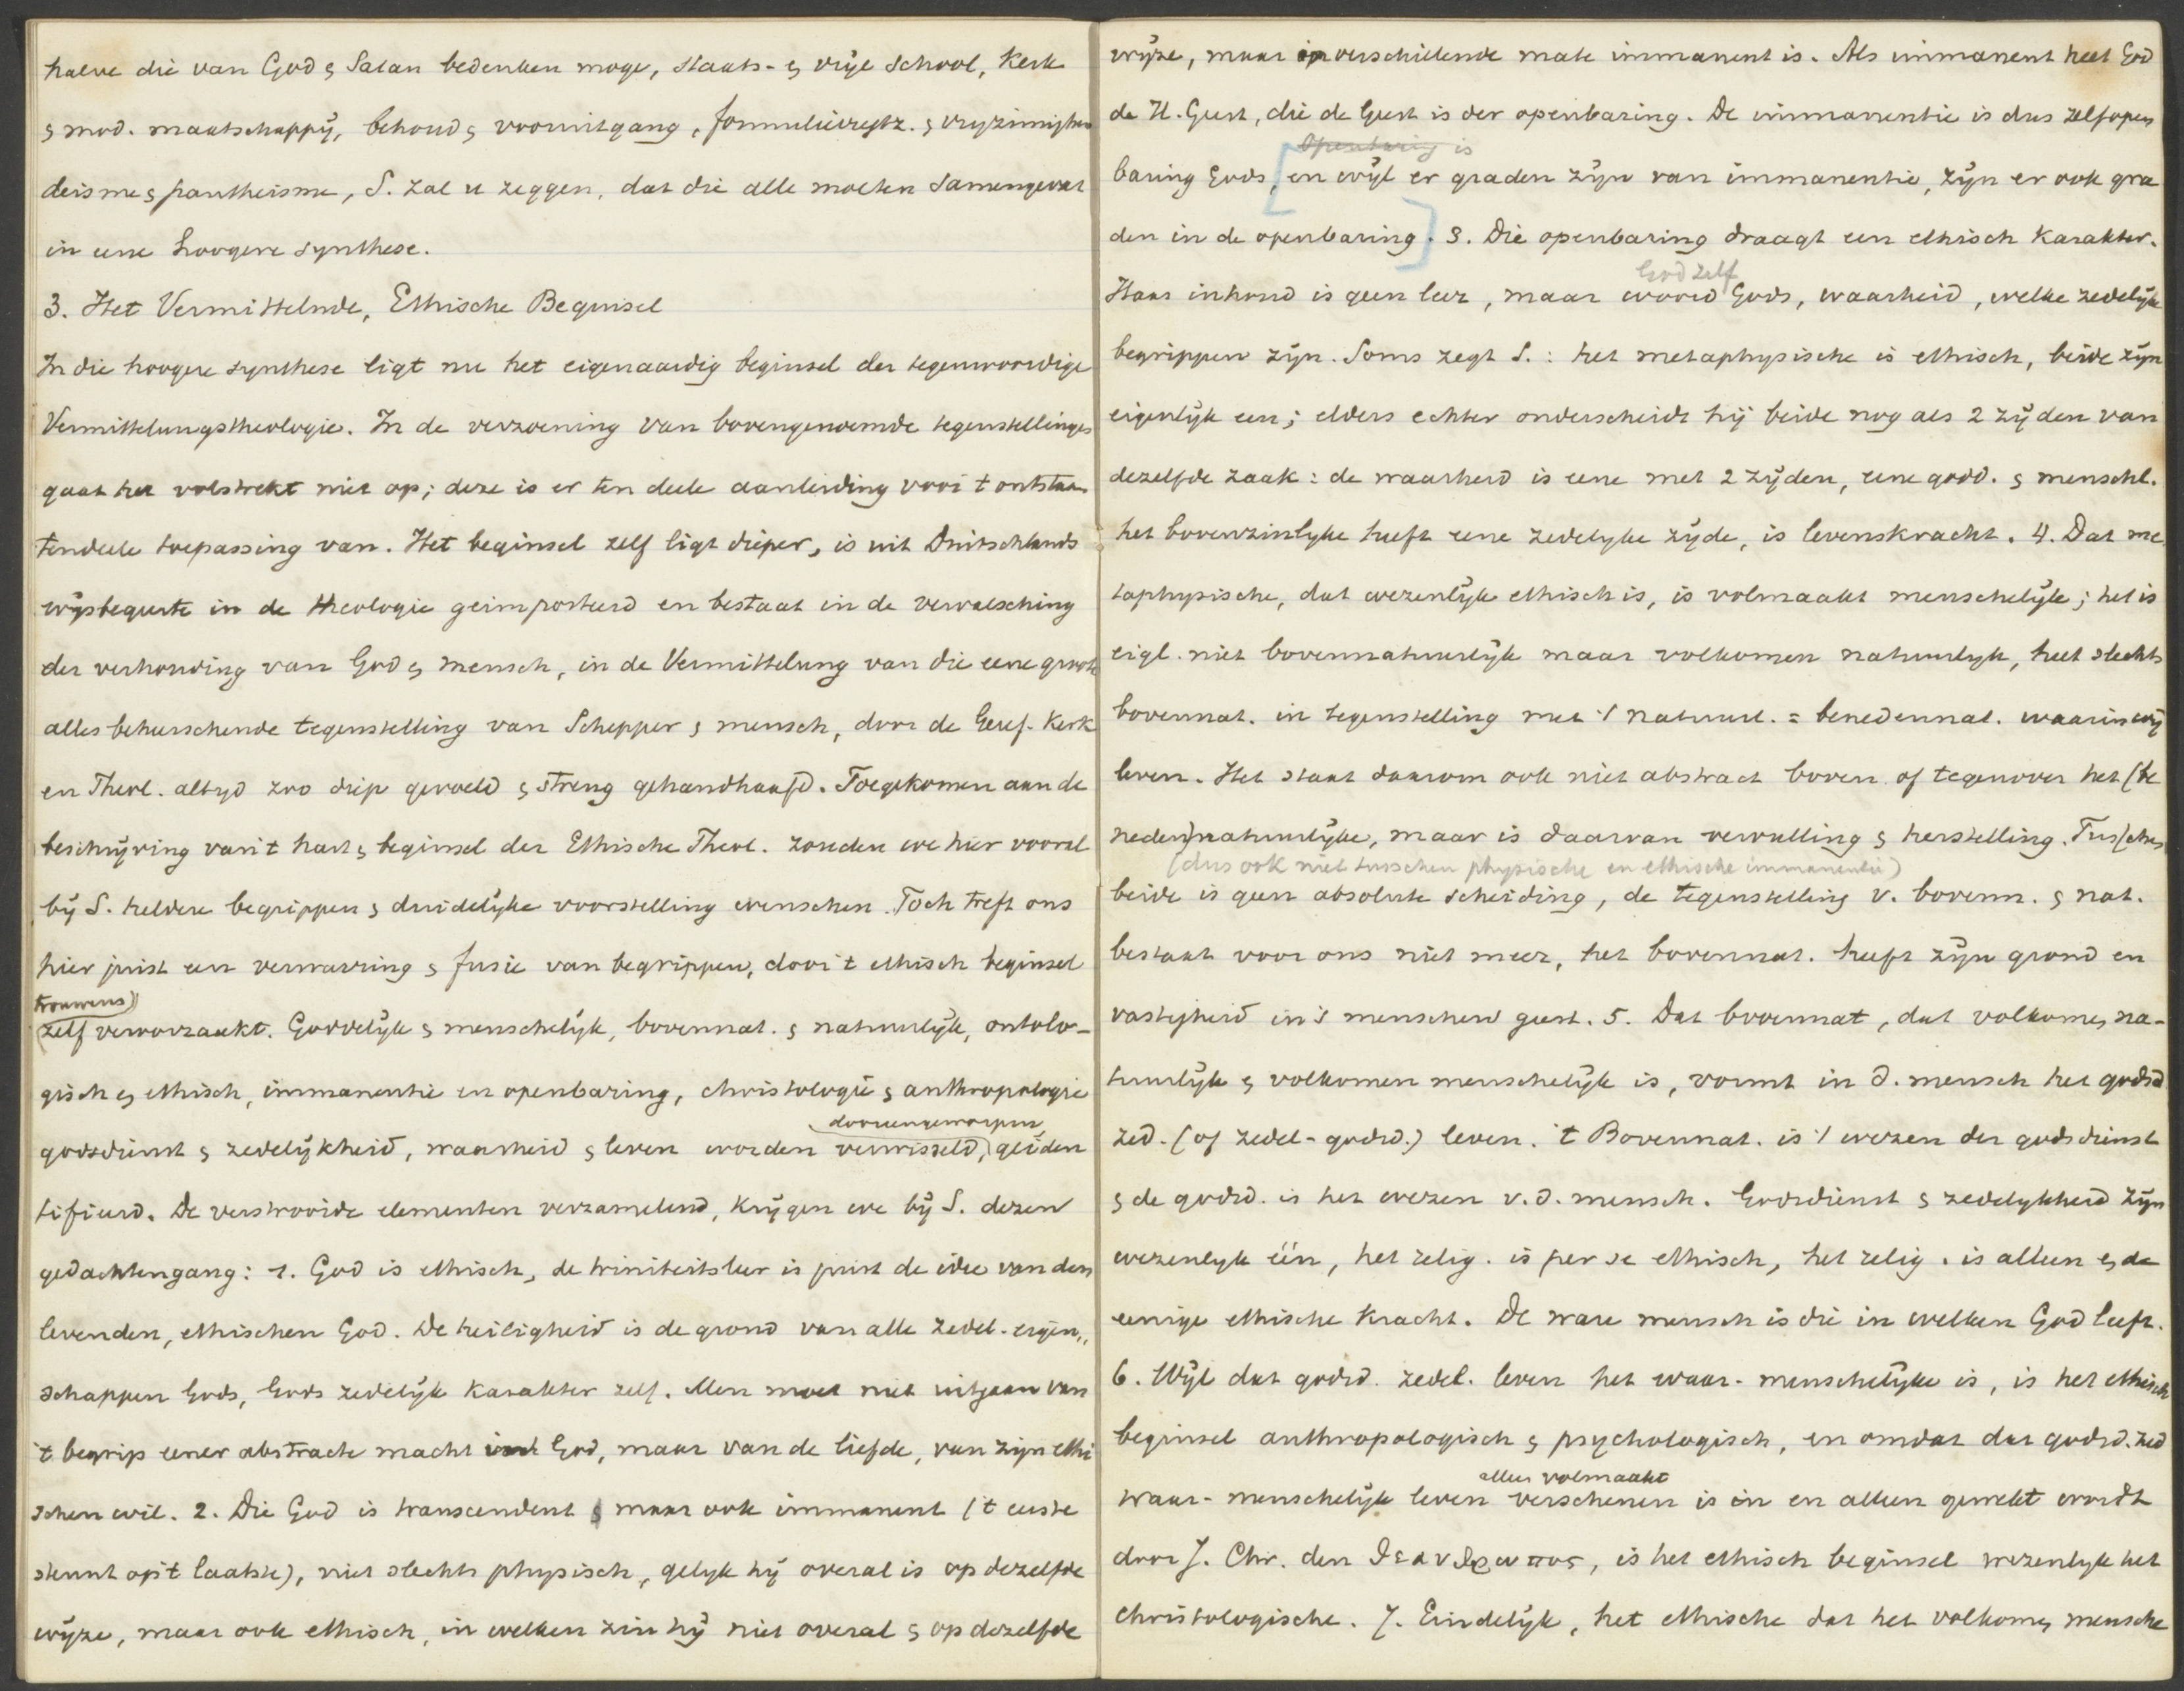 halve die van God & Satan bedenken moge, staats- & vrije school, Kerk
& mod. maatschappij, behoud & vooruitgang, &
deisme & pantheisme, S. zal u zeggen, dat die alle moeten samengevat
in eene hoogere synthese.
3. Het Vermittelnde, Ethische Beginsel
In die hoogere synthese ligt nu het eigenaardig beginsel der tegenwoordige
Vermittelungstheologie. In de verzoening van bovengenoemde tegenstellingen
gaat het volstrekt niet op; deze is er ten deele aanleiding voor 't ontstaan
tendeele toepassing van. Het beginsel zelf ligt dieper, is uit Duitschlands
wijsbegeerte in de theologie geimporteerd en bestaat in de vervalsching
der verhouding van God & mensch, in de Vermittelung van die eene groote
alles beheerschende tegenstelling van Schepper & mensch, door de Geref. Kerk
en Theol. altijd zoo diep gevoeld & streng gehandhaafd. Toegekomen aan de
beschrijving van 't hart & beginsel der Ethische Theol. zouden we hier vooral
bij S. heldere begrippen & duidelijke voorstelling wenschen. Toch treft ons
hier juist een verwarring & fusie van begrippen, door 't ethisch beginsel
trouwens)
(zelf veroorzaakt. Goddelijk & menschelijk, bovennat. & natuurlijk, ontolo-
gisch & ethisch, immanentie en openbaring, christologie & anthropologie
dooreengeworpen,
godsdienst & zedelijkheid, waarheid & leven worden verwisseld, geïden
tifieerd. De verstrooide elementen verzamelend, krijgen we bij S. dezen
gedachtengang: 1. God is ethisch, de triniteitsleer is juist de idee van den
levenden, ethischen God. De heiligheid is de grond van alle zedel. eigen,,
schappen Gods, Gods zedelijk karakter zelf. Men moet niet uitgaan van
't begrip eener abstracte macht God, maar van de liefde, van zijn ethi
schen wil. 2. Die God is transcendent maar ook immanent ('t eerste
steunt op 't laatste), niet slechts physisch, gelijk hij overal is op dezelfde
wijze, maar ook ethisch, in welken zin hij niet overal & op dezelfde
wijze, maar in verschillende mate immanent is. Als immanent heet God
de H. Geest, die de Geest is der openbaring. De immanentie is dus zelfopen
Openbaring is
baring Gods, [en wijl er graden zijn van immanentie, zijn er ook gra
den in de openbaring]. 3. Die openbaring draagt een ethisch karakter.
God zelf
Haar inhoud is geen leer, maar woord Gods, waarheid, welke zedelijke
begrippen zijn. Soms zegt S.: het metaphysische is ethisch, beide zijn
eigenlijk een; elders echter onderscheidt hij beide nog als 2 zijden van
dezelfde zaak: de waarheid is eene met 2 zijden, eene godd. & menschl.
het bovenzinlijke heeft eene zedelijke zijde, is levenskracht. 4. Dat me
taphysische, dat wezenlijk ethisch is, is volmaakt menschelijk; het is
eigl. niet bovennatuurlijk maar volkomen natuurlijk, heet slechts
bovennat. in tegenstelling met 't natuurl. = benedennat. waarin wij
leven. Het staat daarom ook niet abstract boven of tegenover het (be
neden)natuurlijke, maar is daarvan vervulling & herstelling. Tusschen
(dus ook niet tusschen physische en ethische immanentie)
beide is geen absolute scheiding, de tegenstelling v. bovenn. & nat.
bestaat voor ons niet meer, het bovennat. heeft zijn grond en
vastigheid in 's menschen geest. 5. Dat bovennat, dat volkomen na-
tuurlijk & volkomen menschelijk is, vormt in d. mensch het godsd
zed. (of zedel-godsd.) leven. 't Bovennat. is 't wezen der godsdienst
& de godsd. is het wezen v. d. mensch. Godsdienst & zedelijkheid zijn
wezenlijk één, het relig. is per se ethisch, het relig. is alleen & de
eenige ethische kracht. De ware mensch is die in welken God leeft.
6. Wijl dat godsd. zedel. leven het waar-menschelijke is, is het ethisch
beginsel anthropologisch & psychologisch, en omdat dat godsd. zed
aller volmaakt
waar-menschelijk leven verschenen is in en alleen gewekt wordt
door J. Chr. den θεανθρωπος, is het ethisch beginsel wezenlijk het
christologische. 7. Eindelijk, het ethische dat het volkomen mensche